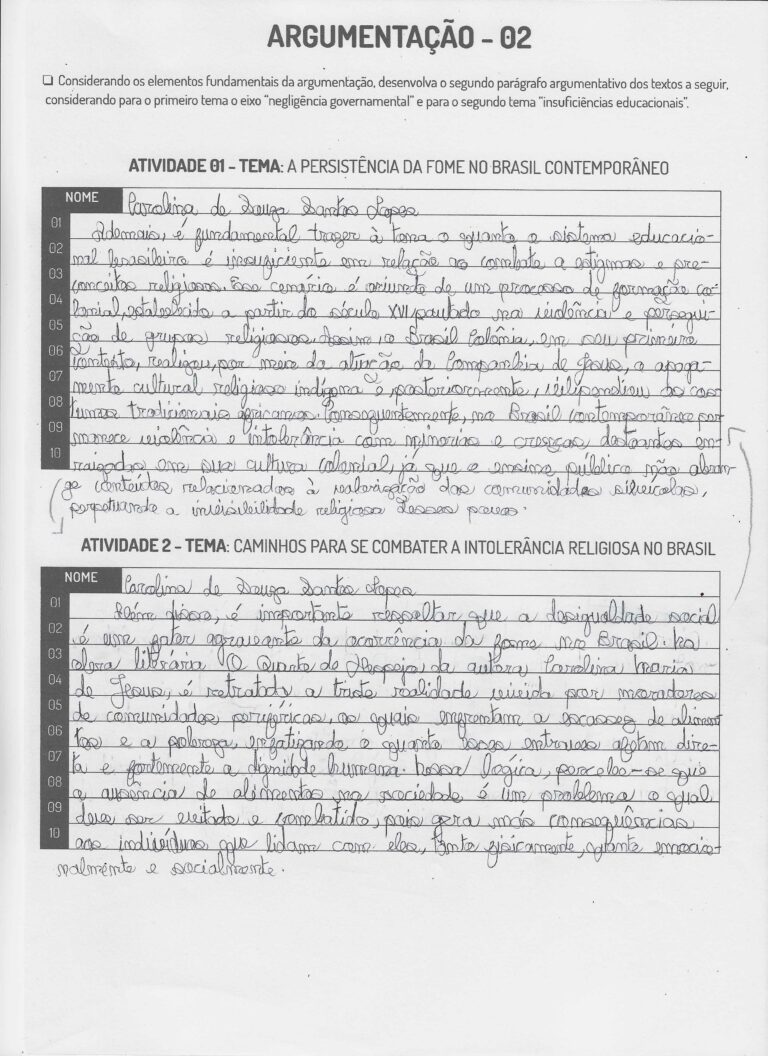 ARGUMENTAÇÃO - 02
❑ Considerando os elementos fundamentais da argumentação, desenvolva o segundo parágrafo argumentativo dos textos a seguir,
considerando para o primeiro tema o eixo "negligência governamental" e para o segundo tema "insuficiências educacionais".
ATIVIDADE 01 - TEMA: A PERSISTÊNCIA DA FOME NO BRASIL CONTEMPORÂNEO
NOME Carolina de Souza Santos Lopes
01 Ademais, é fundamental trazer à tona o quanto o sistema educacio-
02 nal brasileiro é insuficiente em relação ao combate a estigmas e pre-
03 conceitos religiosos. Esse cenário é oriundo de um processo de formação co-
04 lonial, estabelecido a partir do século XVI pautado na violência e persegui-
05 ção de grupos religiosos. Assim, o Brasil Colônia, em seu primeiro
06 contexto, realizou, por meio da atuação da Companhia de Jesus, o apaga-
07 mento cultural religioso indígena e, posteriormente, vilipendiou os cos-
08 tumes tradicionais africanos. Consequentemente, no Brasil contemporâneo per-
09 manece violência e intolerância com minorias e crenças destoantes en-
10 raizadas em sua cultura colonial, já que o ensino público não abran-
ge conteúdos relacionados à valorização das comunidades silvícolas,
perpetuando a invisibilidade religiosa desses povos.
ATIVIDADE 2 - TEMA: CAMINHOS PARA SE COMBATER A INTOLERÂNCIA RELIGIOSA NO BRASIL
NOME Carolina de Souza Santos Lopes
01 Além disso, é importante ressaltar que a desigualdade social
02 é um fator agravante da ocorrência da fome no Brasil. Na
03 obra literária "O Quarto de Despejo, da autora Carolina Maria
04 de Jesus, é retratada a triste realidade vivida por moradores
05 de comunidades periféricas, os quais enfrentam a escassez de alimen-
06 tos e a pobreza, enfatizando o quanto esses entraves afetam dire-
07 ta e fortemente a dignidade humana. Nessa lógica, percebe-se que
08 a ausência de alimentos na sociedade é um problema o qual
09 deve ser evitado e combatido, pois gera más consequências
10 aos indivíduos que lidam com eles, tanto fisicamente, quanto emocio-
nalmente e socialmente.